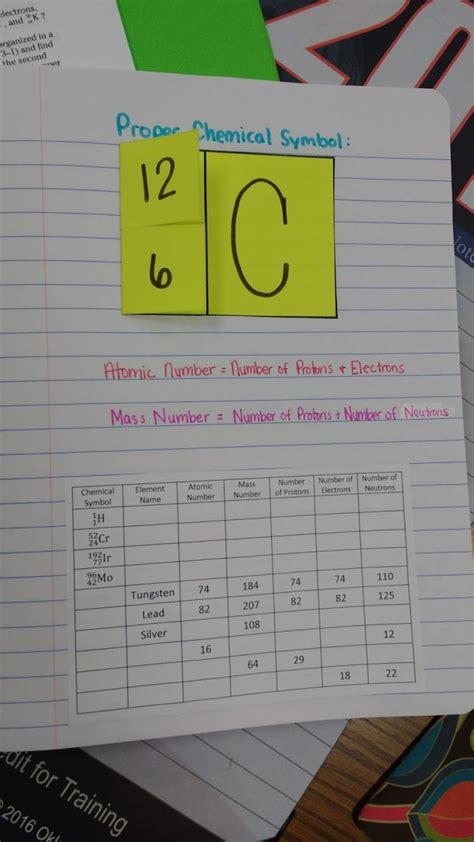 electrons,
, and K ?
organized in a
3–1) and find
the second
Proper Chemical Symbol:
12
6
C
Atomic Number = Number of Protons + Electrons
Mass Number = Number of Protons + Number of Neutrons
Chemical Symbol Element Name Atomic Number Mass Number Number of Protons Number of Electrons Number of Neutrons
¹₁H
⁵²₂₄Cr
¹⁹²₇₇Ir
⁹⁶₄₂Mo
Tungsten 74 184 74 74 110
Lead 82 207 82 82 125
Silver 108
16 12
64 29
18 22
for Training
2016